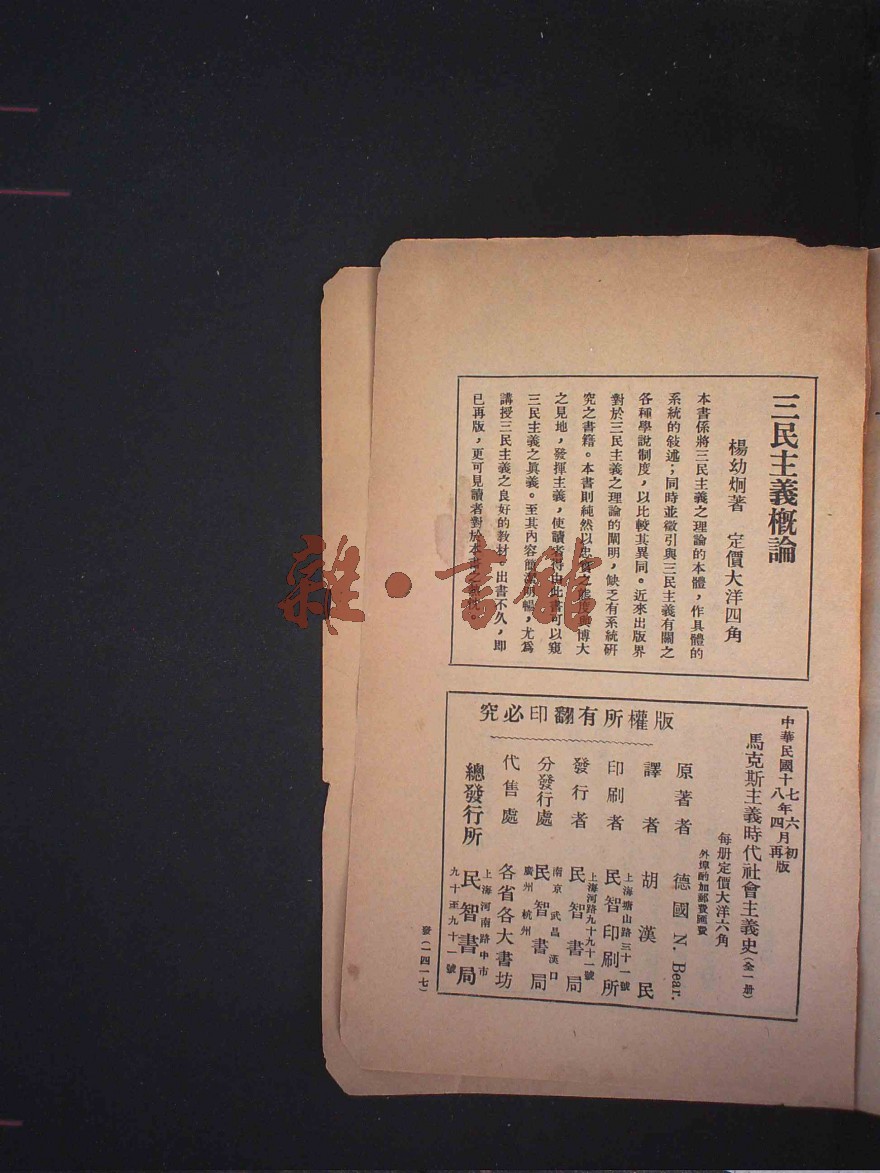 三民主義槪論
楊幼炯著　定價大洋四角
本書係將三民主義之理論的本體，作具體的
系統的敍述；同時並徵引與三民主義有關之
各種學說制度，以比較其異同。近來出版界
對於三民主義之理論的闡明，缺乏有系統硏
究之書籍。本書則純然以忠實之態度與博大
之見地，發揮主義，使讀者得由此書可以窺
三民主義之眞義。至其內容簡潔明暢，尤爲
講授三民主義之良好的敎材。出書不久，卽
已再版，更可見讀者對於本書之
中華民國十七年六月初版
十八年四月再版
馬克斯主義時代社會主義史（全一册）
每册定價大洋六角
外埠酌加郵費匯費
原著者　德國 N. Bear.
譯者　胡漢民
印刷者　上海塘山路三十一號　民智印刷所
發行者　上海河路九十九十一號　民智書局
分發行處　南京　武昌　漢口　廣州　杭州　民智書局
代售處　各省各大書坊
總發行所　上海河南路中市九十至九十一號　民智書局
版權所有翻印必究
發（一四一七）
雜·書館